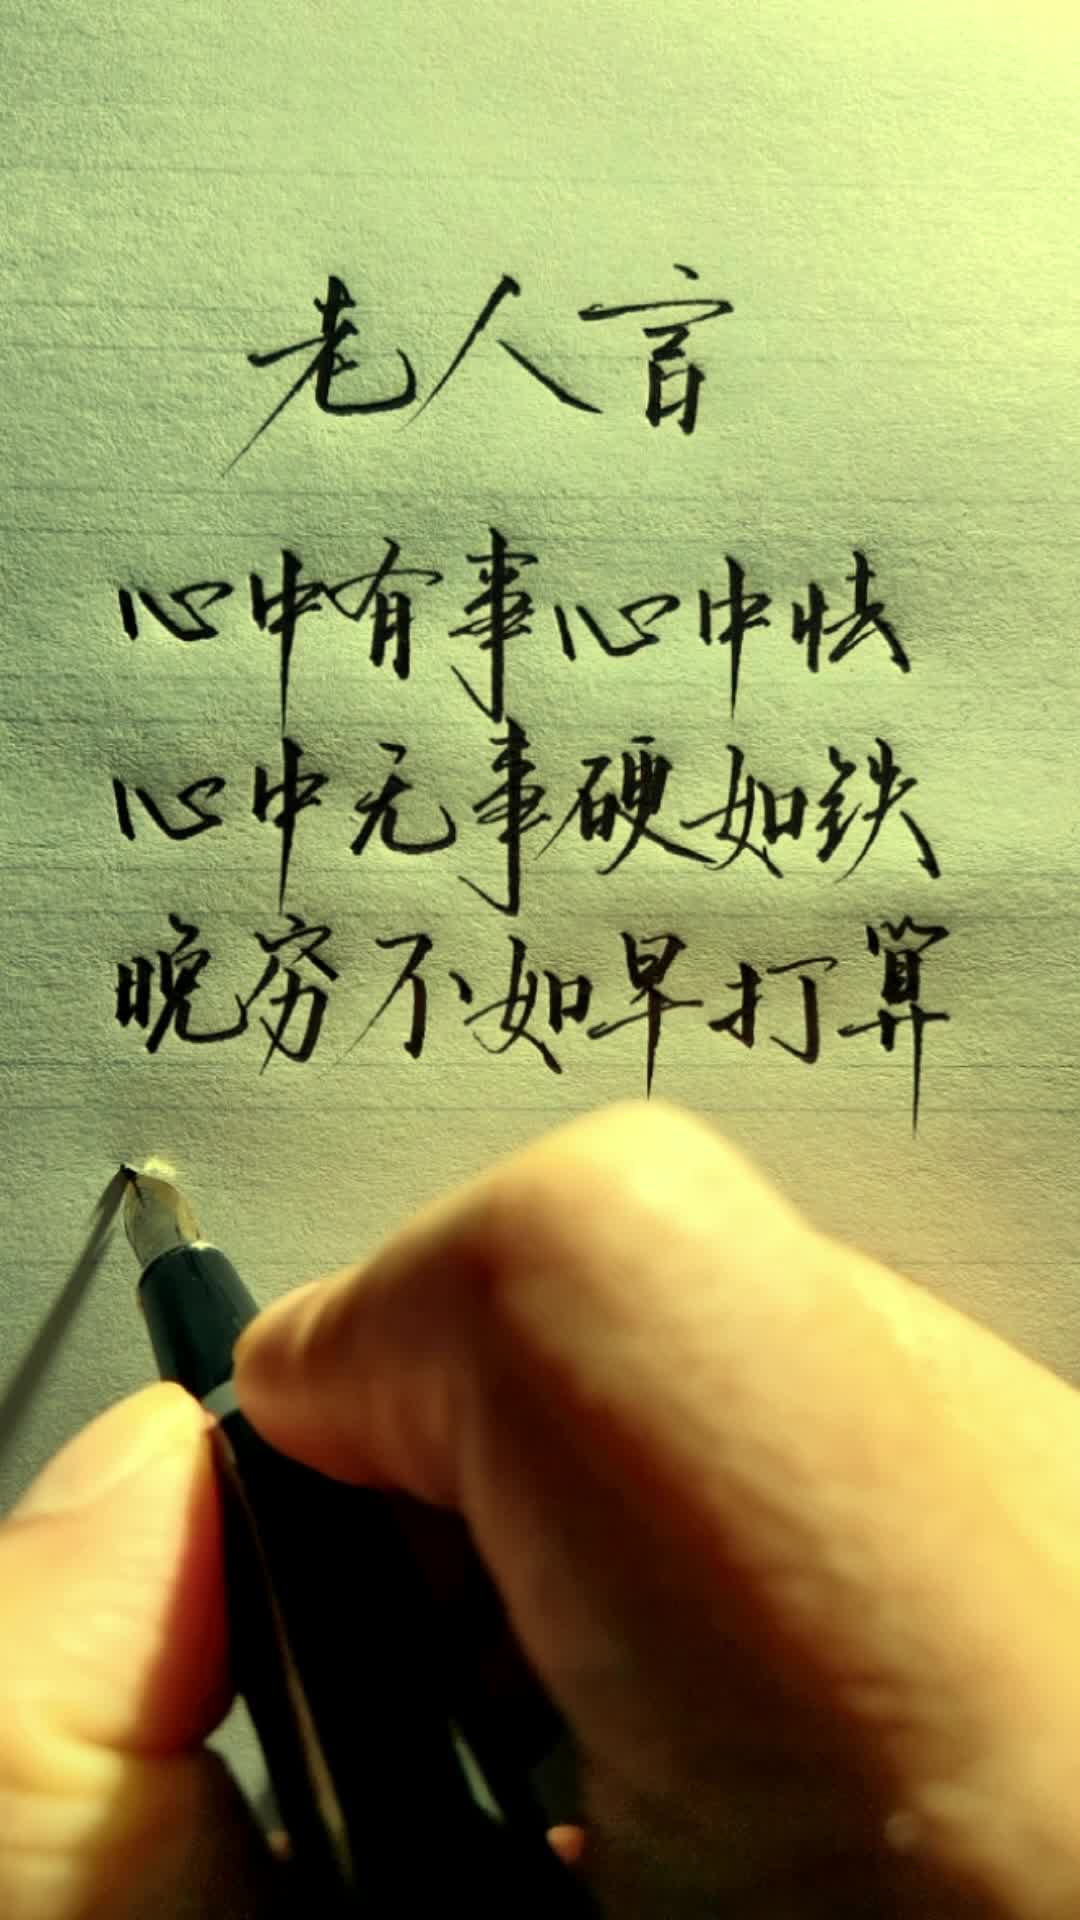 老人言
心中有事心中怯
心中无事硬如铁
晚穷不如早打算